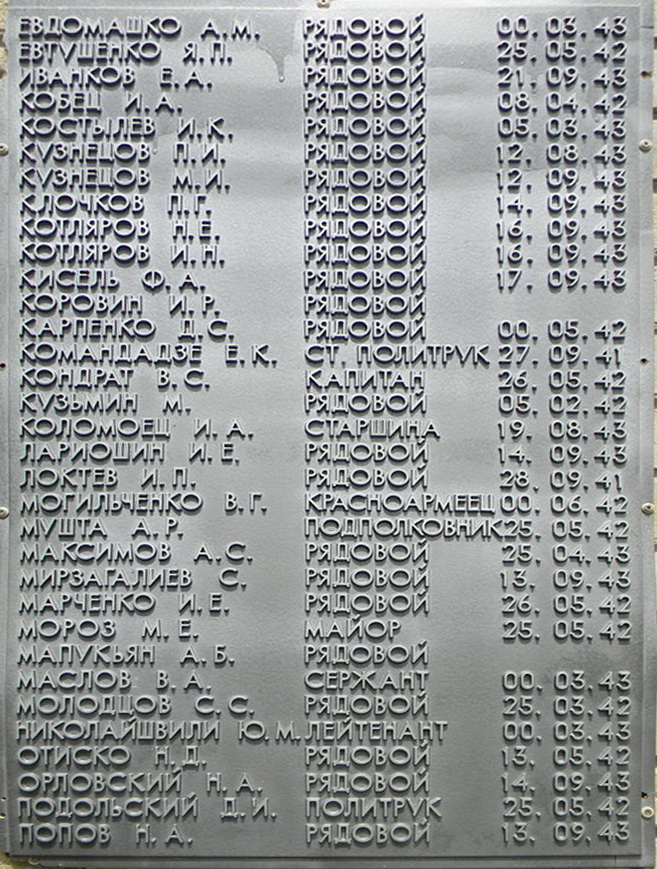 ЕВДОМАШКО А.М. РЯДОВОЙ 00.03.43
ЕВТУШЕНКО Я.П. РЯДОВОЙ 25.05.42
ИВАНКОВ Е.А. РЯДОВОЙ 21.09.43
КОБЕЦ И.А. РЯДОВОЙ 08.04.42
КОСТЫЛЕВ И.К. РЯДОВОЙ 05.03.43
КУЗНЕЦОВ П.И. РЯДОВОЙ 12.08.43
КУЗНЕЦОВ М.И. РЯДОВОЙ 12.09.43
КЛОЧКОВ П.Г. РЯДОВОЙ 14.09.43
КОТЛЯРОВ Н.Е. РЯДОВОЙ 16.09.43
КОТЛЯРОВ И.Н. РЯДОВОЙ 16.09.43
КИСЕЛЬ Ф.А. РЯДОВОЙ 17.09.43
КОРОВИН И.Р. РЯДОВОЙ
КАРПЕНКО Д.С. РЯДОВОЙ 00.05.42
КОМАНДАДЗЕ Е.К. СТ. ПОЛИТРУК 27.09.41
КОНДРАТ В.С. КАПИТАН 26.05.42
КУЗЬМИН М. РЯДОВОЙ 05.02.42
КОЛОМОЕЦ И.А. СТАРШИНА 19.08.43
ЛАРИОШИН И.Е. РЯДОВОЙ 14.09.43
ЛОКТЕВ И.П. РЯДОВОЙ 28.09.41
МОГИЛЬЧЕНКО В.Г. КРАСНОАРМЕЕЦ 00.06.42
МУШТА А.Р. ПОДПОЛКОВНИК 25.05.42
МАКСИМОВ А.С. РЯДОВОЙ 25.04.43
МИРЗАГАЛИЕВ С. РЯДОВОЙ 13.09.43
МАРЧЕНКО И.Е. РЯДОВОЙ 26.05.42
МОРОЗ М.Е. МАЙОР 25.05.42
МАПУКЬЯН А.Б. РЯДОВОЙ
МАСЛОВ В.А. СЕРЖАНТ 00.03.43
МОЛОДЦОВ С.С. РЯДОВОЙ 25.03.42
НИКОЛАЙШВИЛИ Ю.М. ЛЕЙТЕНАНТ 00.03.43
ОТИСКО Н.Д. РЯДОВОЙ 13.05.42
ОРЛОВСКИЙ Н.А. РЯДОВОЙ 14.09.43
ПОДОЛЬСКИЙ Д.И. ПОЛИТРУК 25.05.42
ПОПОВ Н.А. РЯДОВОЙ 13.09.43